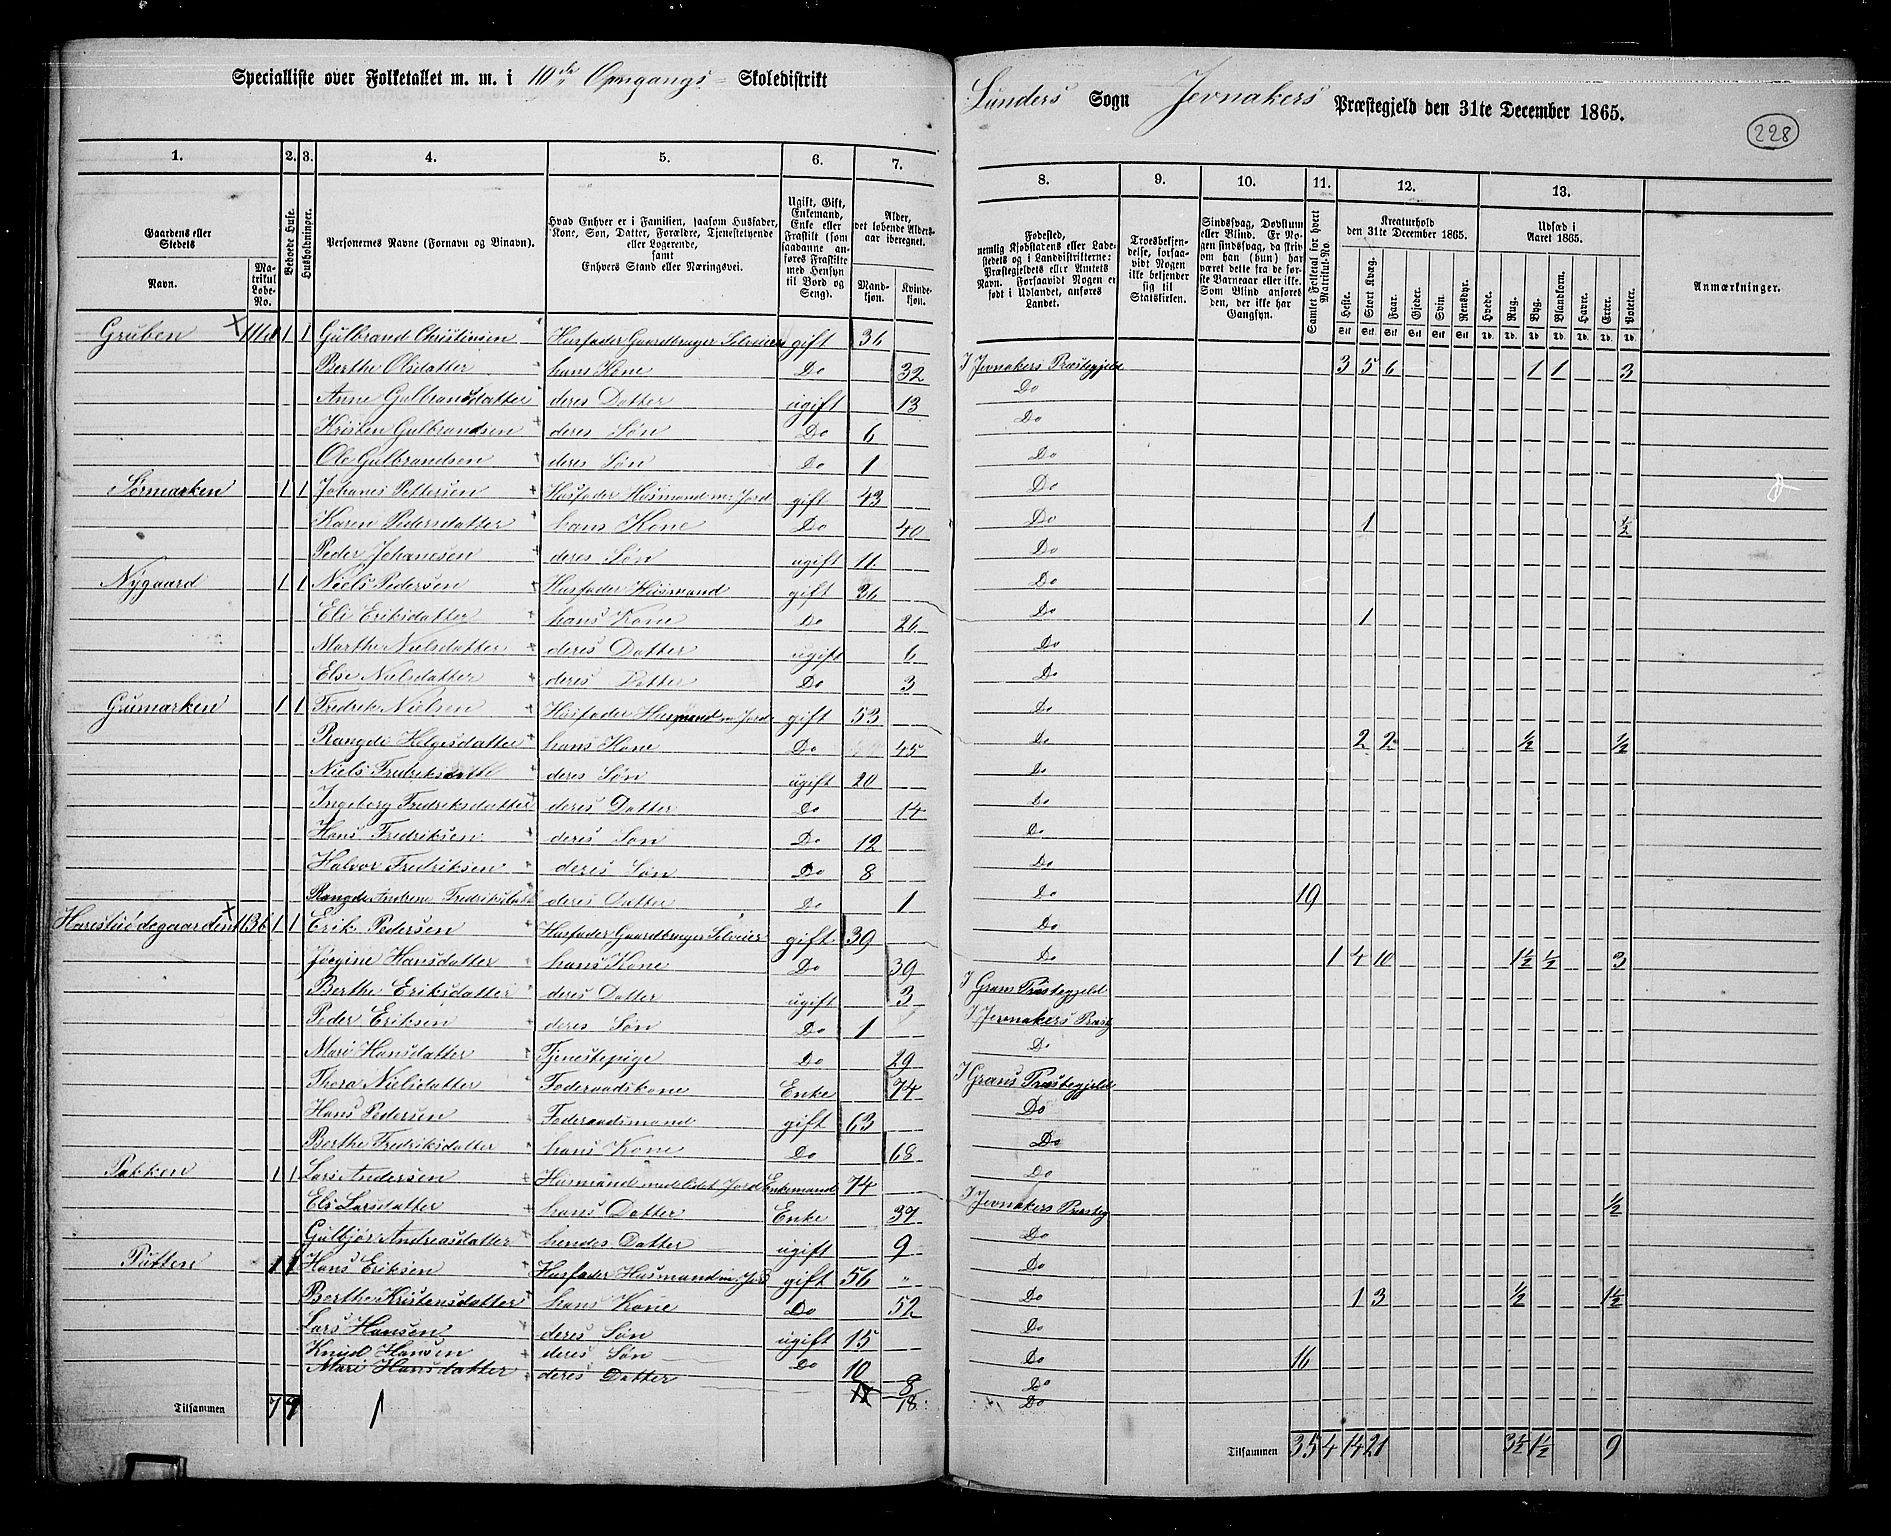 Specialliste over Folketallet m. m. i 10de Omgangs- Skoledistrikt
Lunders Sogn Jevnakers Præstegjeld den 31te December 1865.
228
1. 2. 3. 4. 5. 6. 7.
8. 9. 10. 11. 12. 13.
Gaardens eller Stedets
Navn. Matrikul Løbe-No.
Beboede Huse.
Husholdninger.
Personernes Navne (Fornavn og Binavn).
Hvad Enhver er i Familien, saasom Husfader, Kone, Søn, Datter, Forældre, Tjenestetyende eller Logerende, samt Enhvers Stand eller Næringsvei.
Ugift, Gift, Enkemand, Enke eller Fraskilt (som saadanne anføres Fraskilte med Hensyn til Bord og Seng).
Alder, det løbende Alders-aar iberegnet.
Mandkjøn. Kvindekjøn.
Fødested, nemlig Kjøbstadens eller Ladestedets og i Landdistrikterne: Præstegjeldets eller Amtets Navn. Forsaavidt Nogen er født i Udlandet, anføres Landet.
Troesbekjendelse, forsaavidt Nogen ikke bekjender sig til Statskirken.
Sindssvag, Døvstum eller Blind. Er Nogen sindssvag, da skrives om han (hun) har været dette fra de første Barneaar eller ikke. Som Blind anføres den, der ikke har Gangsyn.
Samlet Folketal for hvert Matrikul-No.
Kreaturhold den 31te December 1865.
Heste. Stort Kvæg. Faar. Gjeder. Svin. Rensdyr.
Udsæd i Aaret 1865.
Hvede. Rug. Byg. Blandkorn. Havre. Erter. Poteter.
Anmærkninger.
Gruben 1 1 Gulbrand Christiansen Husfader Gaardbruger Selveier gift 36
Berthe Olsdatter hans Kone Do 32 I Jevnakers Præstegjeld 3 5 6 1 1 3
Anne Gulbransdatter deres Datter ugift 13 Do
Kristen Gulbrandsen deres Søn Do 6 Do
Ole Gulbrandsen deres Søn Do 1 Do
Sørmarken 1 1 Johanes Pettersen Husfader Husmand m: Jord gift 43 Do
Karen Pedersdatter hans Kone Do 40 Do 1 ½
Peder Johanesen deres Søn ugift 11 Do
Nygaard 1 1 Niels Pedersen Husfader Husmand gift 36 Do
Eli Eriksdatter hans Kone Do 26 Do 1
Marthe Nielsdatter deres Datter ugift 6 Do
Else Nielsdatter deres Datter Do 3 Do
Grumarken 1 1 Fredrik Nielsen Husfader Husmand m: Jord gift 53 Do
Rangdi Helgesdatter hans Kone Do 45 Do 2 2 ½ ½
Niels Fredriks deres Søn ugift 20 Do
Ingeborg Fredriksdatter deres Datter Do 14 Do
Hans Fredriksen deres Søn Do 12 Do
Halvor Fredriksen deres Søn Do 8 Do
Rangdi Andrene Fredriksdatt deres Datter Do 1 Do 19
Harestuødegaarden 136 1 1 Erik Pedersen Husfader Gaardbruger Selveier gift 39 Do
Jørgine Hansdatter hans Kone Do 39 Do 1 4 10 1½ ½ 3
Berthe Eriksdatter deres Datter ugift 3 I Grans Præstegjeld
Peder Eriksen deres Søn Do 1 I Jevnakers Præstg
Mari Hansdatter Tjenestepige Do 29 Do
Thora Nielsdatter Føderaadskone Enke 74 I Grans Præstegjeld
Hans Pedersen Føderaadsmand gift 63 Do
Berthe Fredriksdatter hans Kone Do 68 Do
Pakken 1 1 Lars Andersen Husmand med lidet Jord Enkemand 74 Do
Eli Larsdatter hans Datter Enke 37 I Jevnakers Præsteg ½
Gulbjør Andreasdatter hendes Datter ugift 9 Do
Putten 1 1 Hans Eriksen Husfader Husmand m: Jord gift 56 " Do
Berthe Kristensdatter hans Kone Do 52 Do 1 3 ½ 1½
Lars Hansen deres Søn ugift 15 Do
Knud Hansen deres Søn Do 10 Do 16
Mari Hansdatter deres Datter 8 Do
Tilsammen 7 7 1 18 Do
Tilsammen 35 4 14 21 3½ 1½ 9